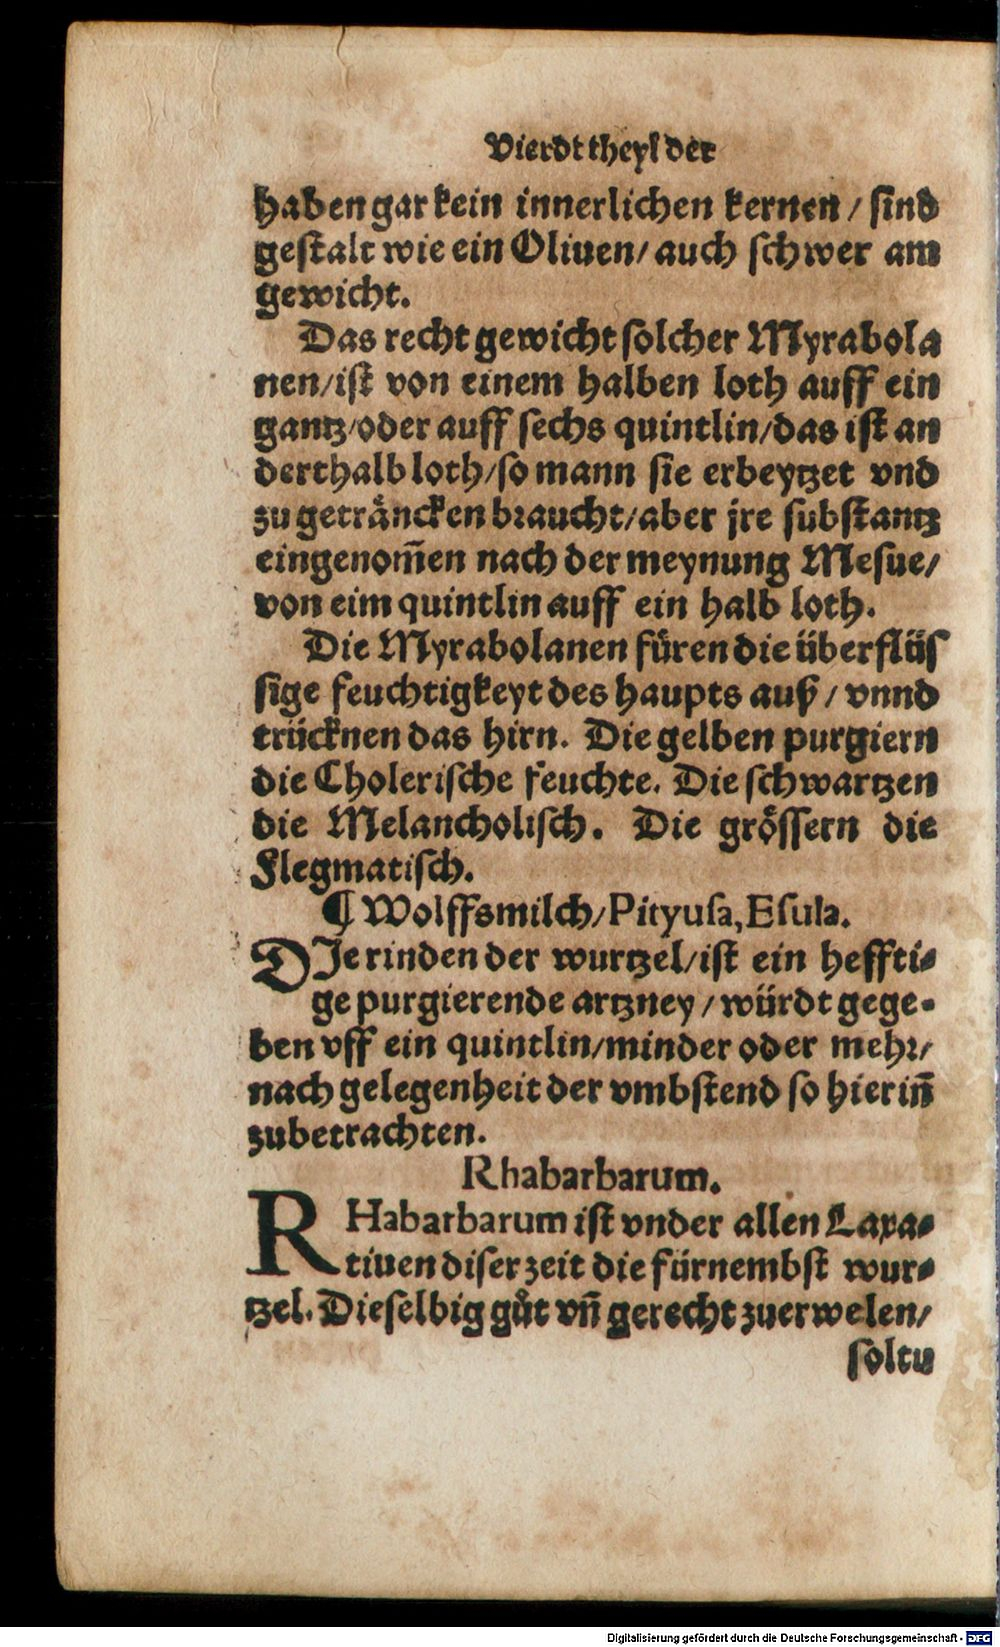 Vierdt theyl der
haben gar kein innerlichen kernen / sind
gestalt wie ein Oliuen / auch schwer am
gewicht.
Das recht gewicht solcher Myrabola
nen / ist von einem halben loth auff ein
gantz / oder auff sechs quintlin / das ist an
derthalb loth / so mann sie erbeytzet vnd
zu getråncken braucht / aber jre substantz
eingenom̄en nach der meynung Mesue /
von eim quintlin auff ein halb loth.
Die Myrabolanen füren die überflüs
sige feuchtigkeyt des haupts auß / vnnd
trücknen das hirn. Die gelben purgiern
die Cholerische feuchte. Die schwartzen
die Melancholisch. Die grössern die
Flegmatisch.
¶ Wolffsmilch / Pityusa, Esula.
DIe rinden der wurtzel / ist ein heffti⸗
ge purgierende artzney / würdt gege⸗
ben vff ein quintlin / minder oder mehr /
nach gelegenheit der vmbstend so hier in̄
zubetrachten.
Rhabarbarum.
RHabarbarum ist vnder allen Laxa⸗
tiuen diser zeit die fürnembst wur⸗
tzel. Dieselbig gůt vn̄ gerecht zuerwelen /
soltu
Digitalisierung gefördert durch die Deutsche Forschungsgemeinschaft - DFG